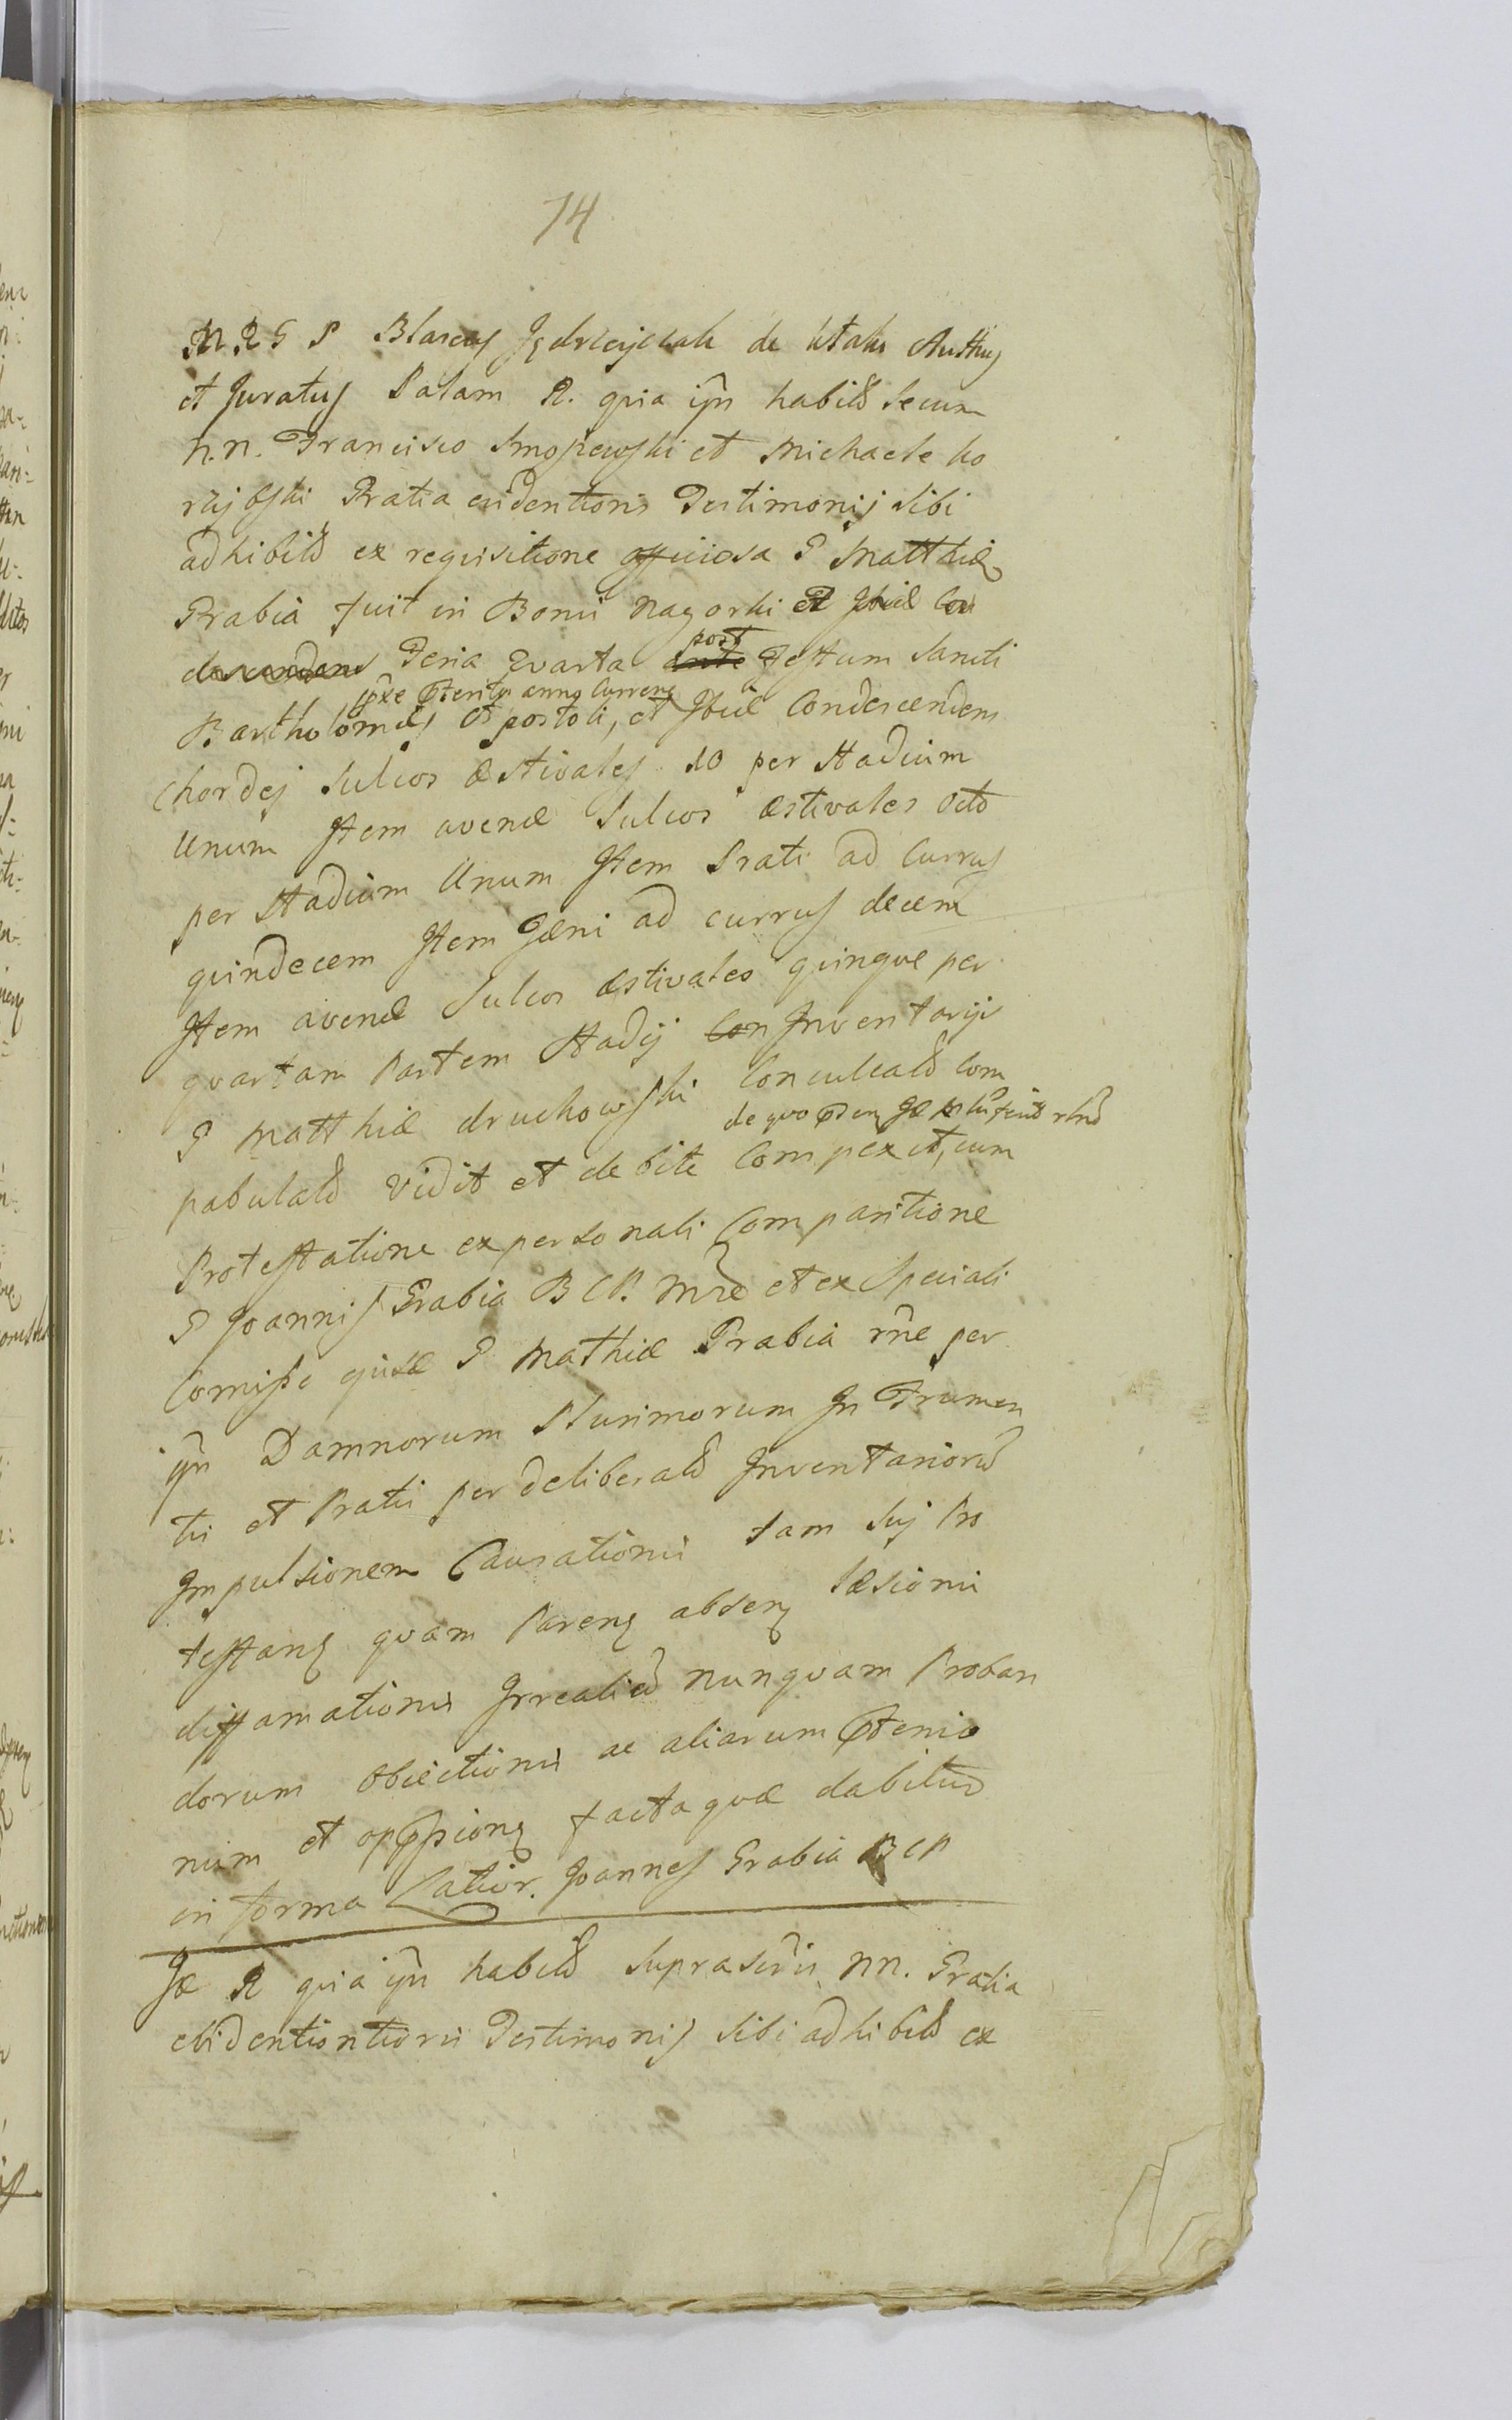 14
M. R. G P Blasius Jędrzeyczak de Ktaki Authus
et Juratus Palam R. quia ijn habitis secum
N.N. Francisco Smoszewski et Michaele ko
Gratia evidentioris Testimonij sibi
adhibitis ex requisitione officiosa G Matthiæ
Grabia fuit in Bonis Nagorki et Ibid Con
descendens Feria Quarta ante post Festum Sancti
Bartholomæi Apostoli, et Ibid Condescendens
pxe pterito anno Currenc
Chordej Sulcos æstivales 10 per Stadium
Unum Item avenæ Sulcos æstivales octo
per Stadium Unum Item Prati ad Currus
quindecem Item Fæni ad currus decem
Item avenæ Sulcos æstivales quinque per
quartam Partem Stadij Con Inventarijs
G Matthiæ druchowski Conculcatd Com
de quo
pabulatd vidit et debite Compexit, cum
Protestatione ex personali Comparitione
G Joannis Grabia B C P. Mræ et ex Speciali
Comisse ejusd G Mathiæ Grabia rñe per
ijn Damnorum Plurimorum In Frumen
tis et Pratis per deliberatd Inventariord
Impulsionem Causationis tam Suj Pro
testans quam Parens absens læsionis
diffamationis Irrealiud nunquam Proban
dorum obiectionis ac aliarum ptenio
num et oppssions facta quæ dabitur
in forma Latior. Joannes Grabia BCP
Id R quia ijn habitd suprascris NN. Gratia
evidentiontioris Testimonij sibi adhibitd ex